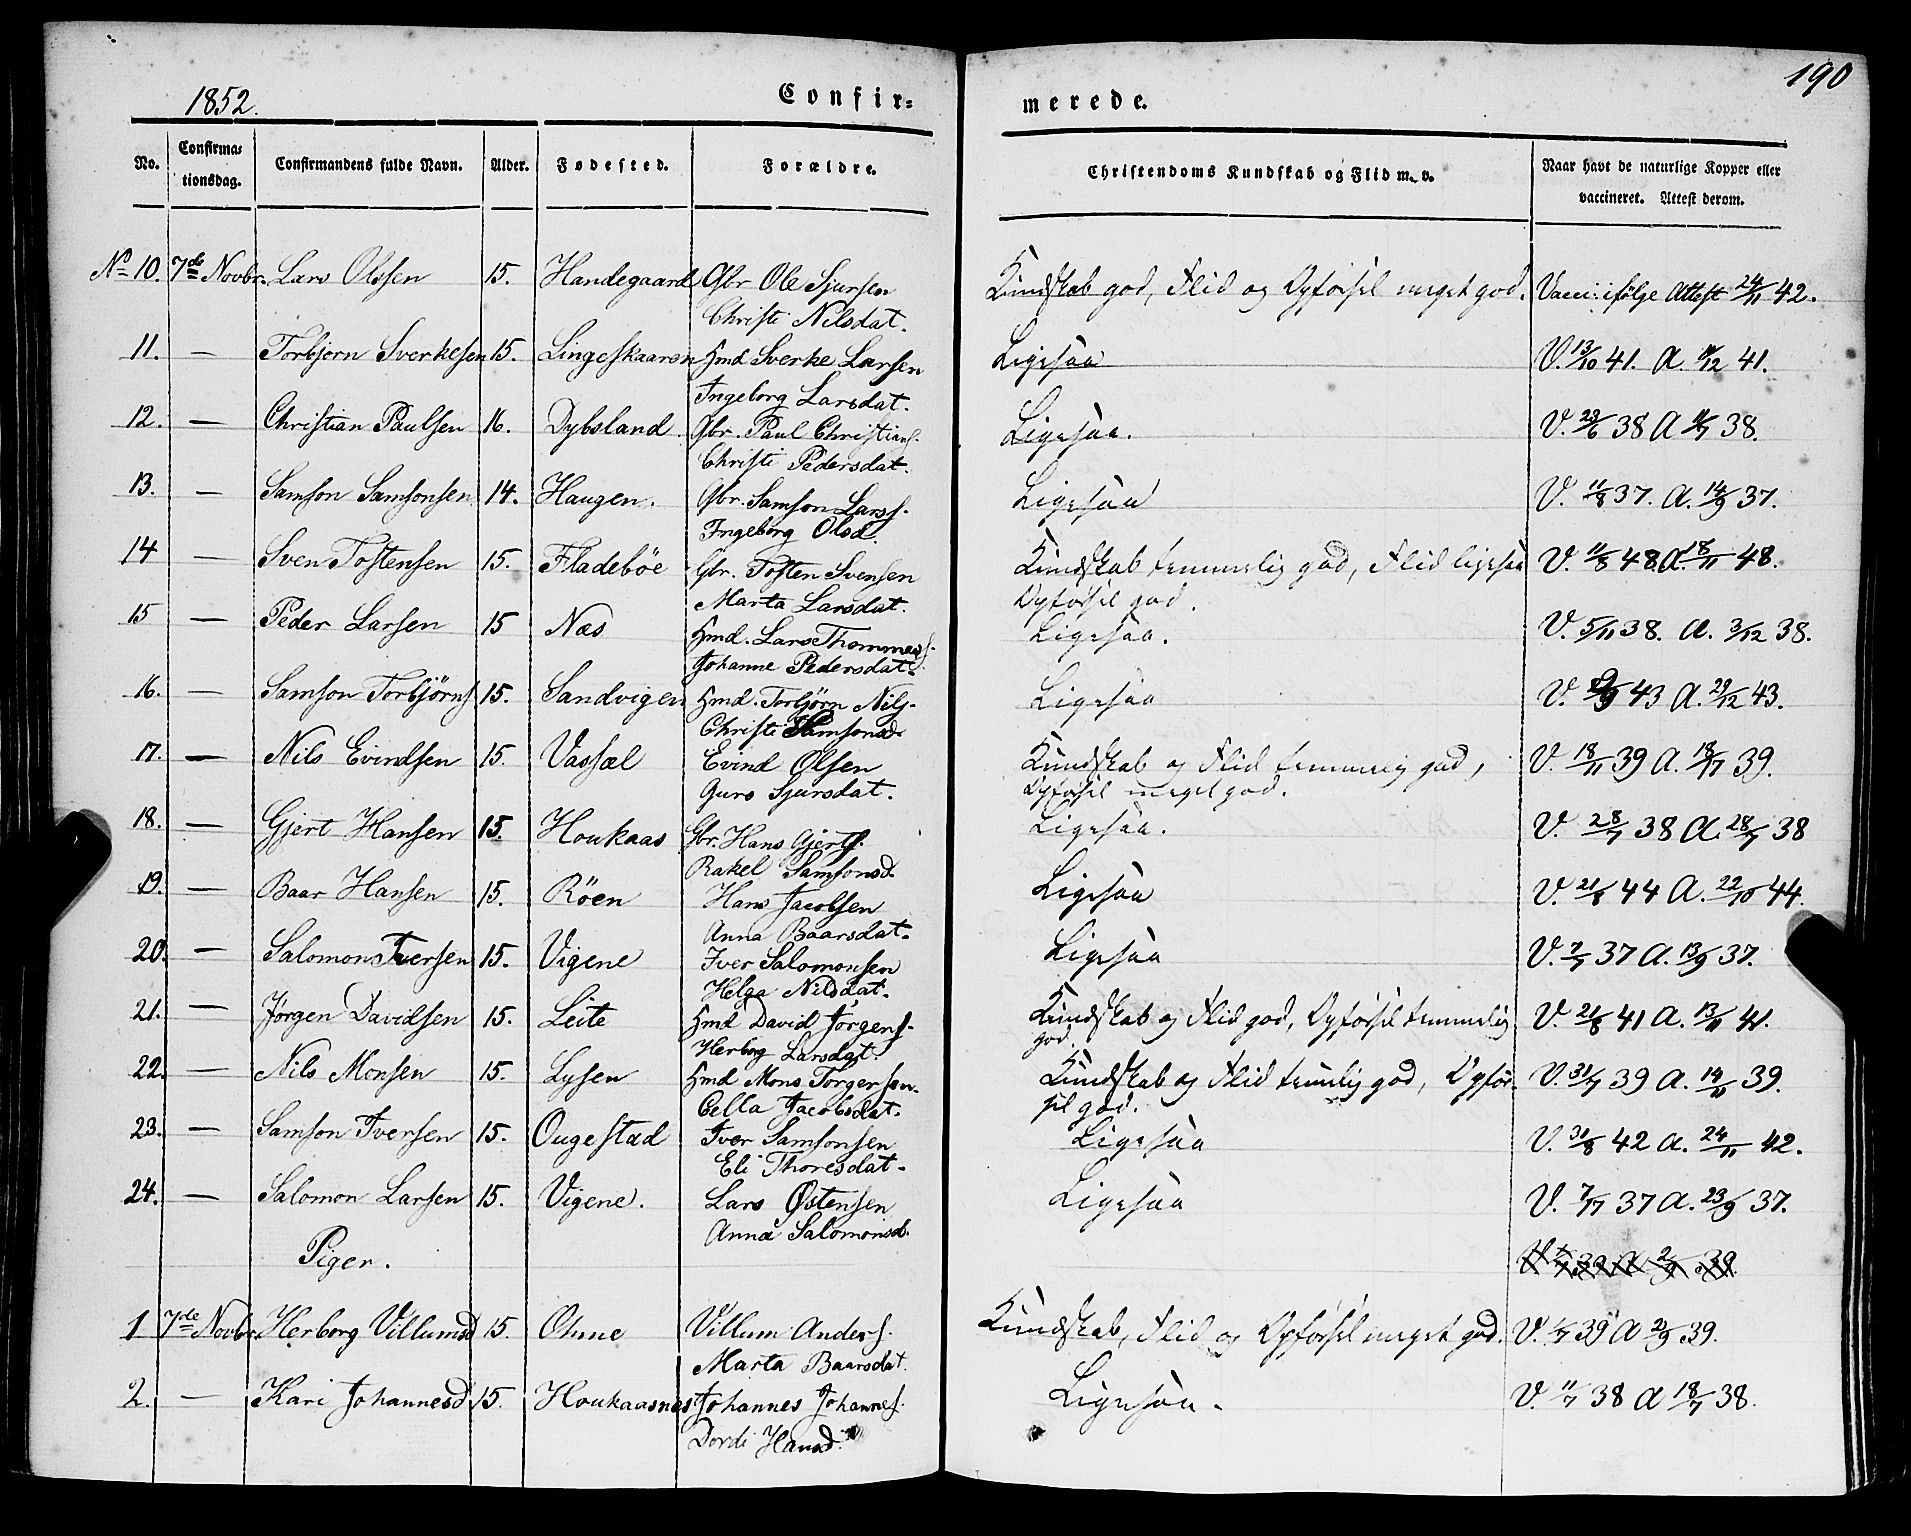 1852.
Confir-
merede.
190
No.
Confirma-
tionsdag.
Confirmandens fulde Navn.
Alder.
Fødested.
Forældre.
Christendoms Kundskab og Flid m. v.
Naar havt de naturlige Kopper eller
vaccineret. Attest derom.
No 10. 7de Novbr. Lars Olssen 15. Handegaard Gbr Ole Sjursen Kundskab god, Flid og Opførsel meget god. Vacci: ifølge Attest 24/11 42.
Christi Nilsdat.
11. — Torbjørn Sverkesen 15. Lingeskaaren Hmd Sverke Larsen Ligesaa V. 13/10 41. A. 11/12 41.
Ingeborg Larsdat.
12. — Christian Paulsen 16. Dybsland. Gbr. Paul Christians. Ligesaa. V. 23/6 38 A 11/7 38.
Christi Pedersdat.
13. — Samson Samsonsen 14. Haugen. Gbr. Samson Larss. Ligesaa V. 11/8 37. A. 14/9 37.
Ingeborg Olsd.
14 — Sven Tostensen 15. Fladebøe Gbr. Tosten Svensen Kundskab temmelig god, Flid ligesaa V. 11/8 48 A. 18/11 48.
Marta Larsdat. Opførsel god.
15 — Peder Larsen 15 Næs Hmd. Lars Thommess. Ligesaa. V. 5/11 38. A. 3/12 38.
Johanne Pedersdat.
16. — Samson Torbjørns 15. Sandvigen Hmd. Torbjørn Nils. Ligesaa V. 43 A. 29/12 43.
Christi Samsonsd.
17. — Nils Evindsen 15. Vassel Evind Olsen Kundskab og Flid temmelig god, V. 18/11 39 A. 18/11 39.
Guro Sjursdat. Opførsel meget god.
18. — Gjert Hansen 15. Houkaas Gbr. Hans Gjerts. Ligesaa. V. 28/7 38 A. 28/7 38
Rakel Samsonsd.
19. — Baar Hansen 15. Røen Hans Jacobsen Ligesaa V. 21/8 44 A. 22/10 44.
Anna Baarsdat.
20. — Salomon Iversen 15. Vigene Iver Salomonsen Ligesaa V. 7/7 37 A. 13/9 37.
Helga Nilsdat.
21. — Jørgen Davidsen 15. Leite Hmd David Jørgens. Kundskab og Flid god, Opførsel temmelig V. 21/8 41 A. 13/11 41.
Herborg Larsdat. god.
22. — Nils Monsen 15. Lysen Hmd Mons Torgersen. Kundskab og Flid temlig god, Opfør- V. 31/7 39 A. 14/11 39.
Cella Jacobsdat. sel god.
23. — Samson Iversen 15. Ougestad Iver Samsonsen Ligesaa V. 31/8 42 A. 24/11 42.
Eli Thoresdat.
24. — Salomon Larsen 15. Vigene. Lars Østensen Ligesaa V. 7/7 37 A. 23/9 37.
Anna Salomonsd.
Piger. V. 1/7 39 A 2/9 39.
1 7de Novbr Herborg Villumsd 15. Ohme Villum Anders. Kundskab, Flid og Opførsel meget god. V. 1/7 39 A 2/9 39.
Marta Baarsdat.
2. — Kari Johannesd 15. Houkaasnes Johannes Johannes. Ligesaa. V. 11/7 38 A 18/7 38.
Dordi Hansd.